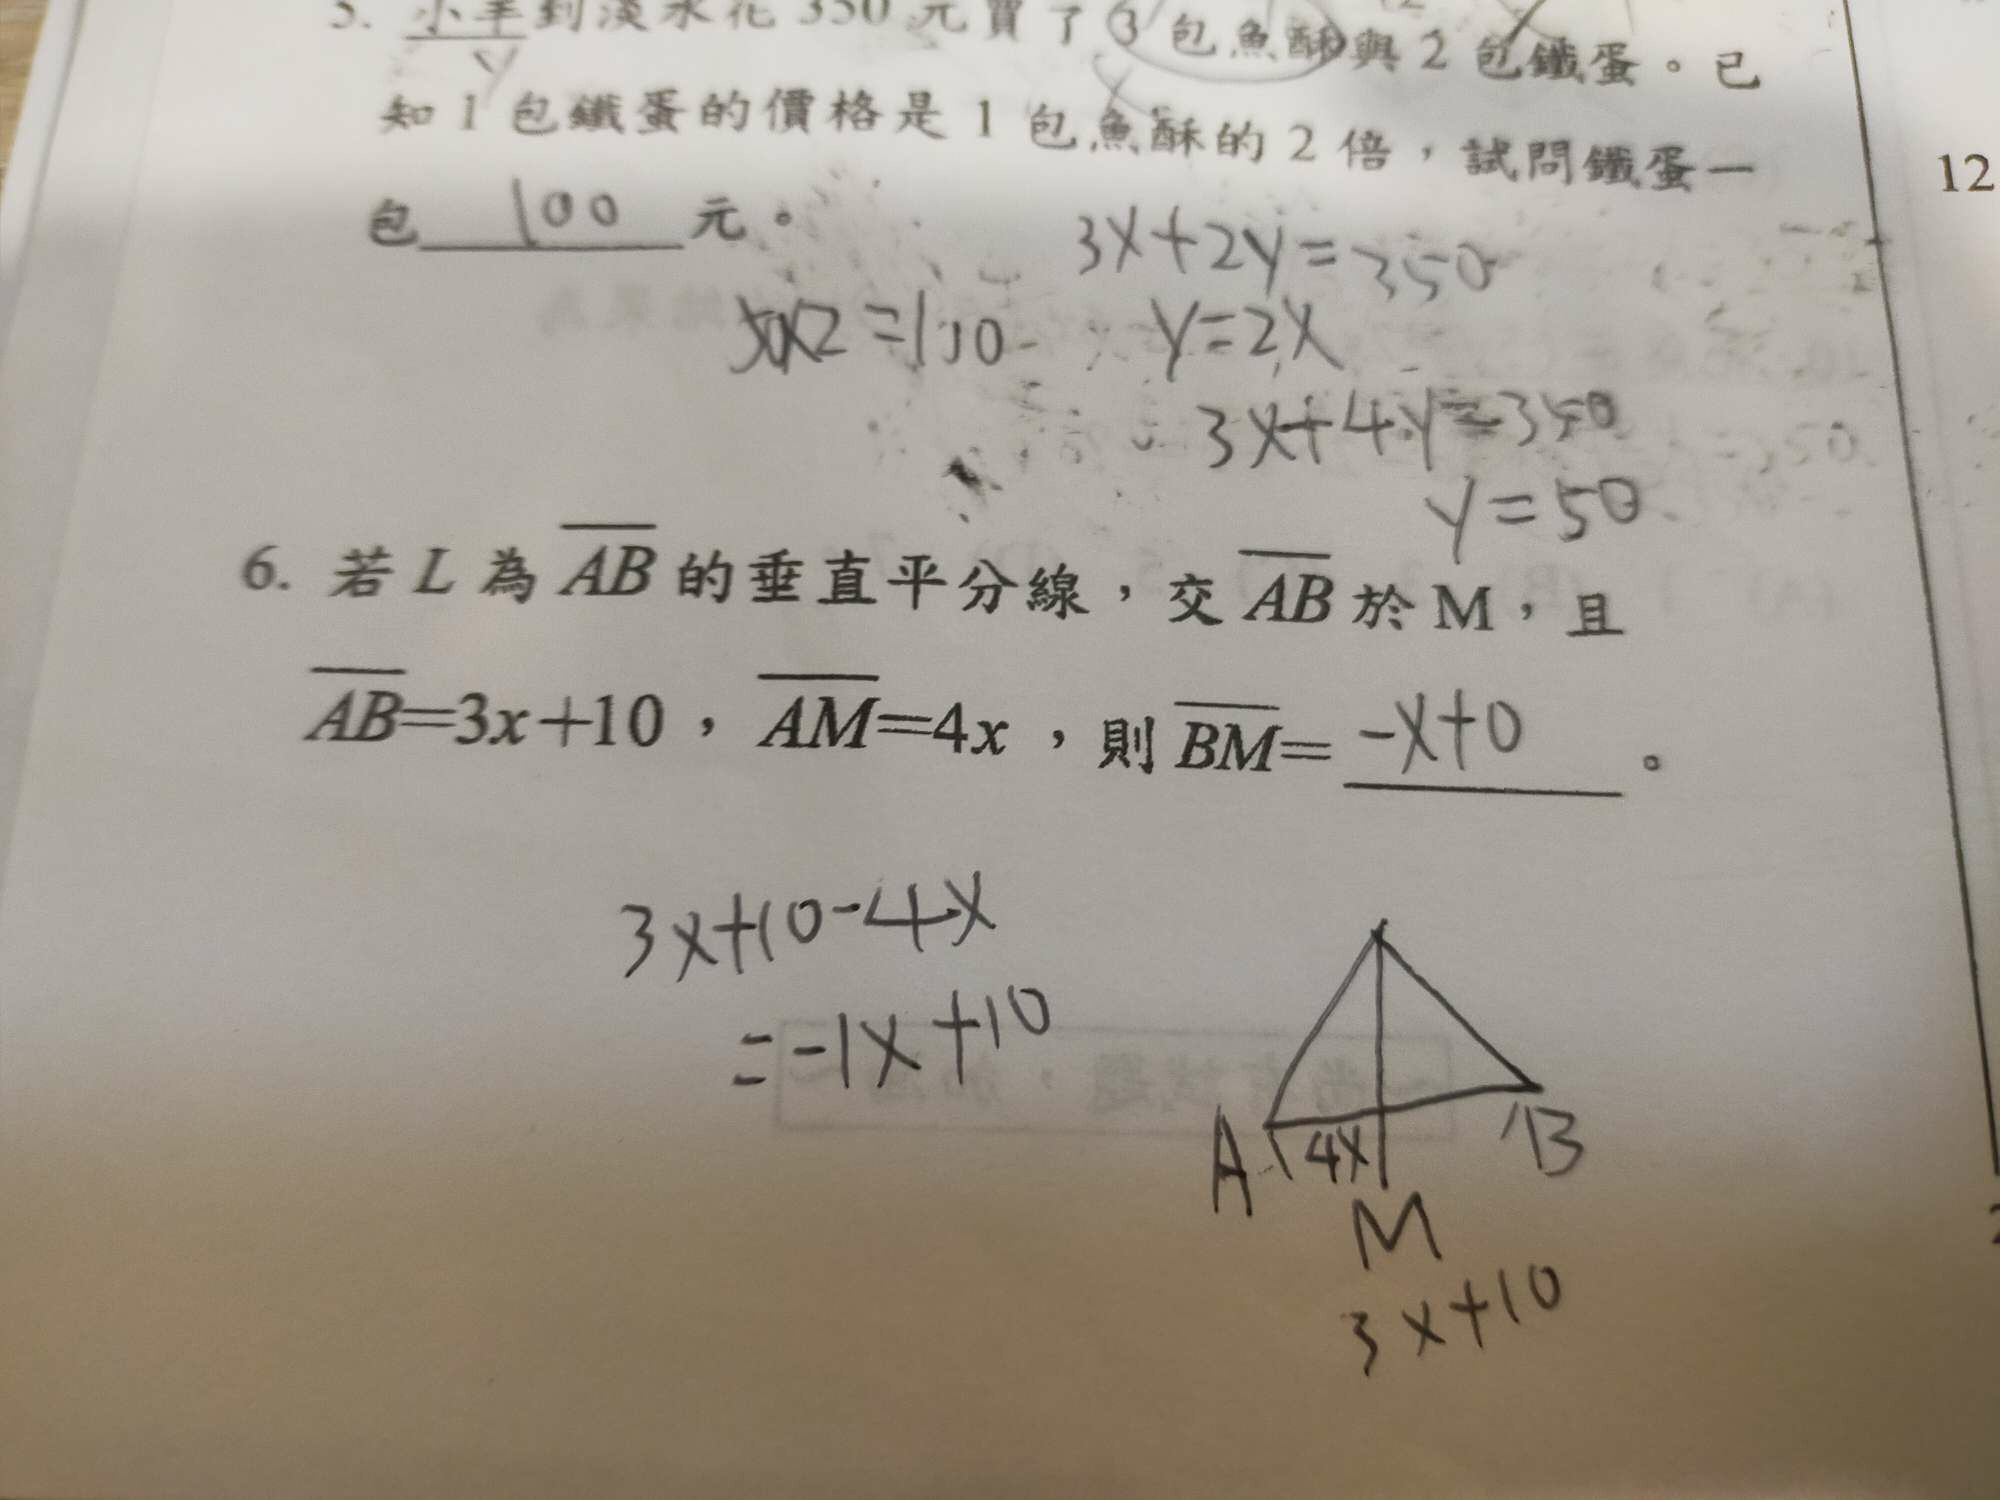 5. 小羊到淡水花 350 元買了 3 包魚酥與 2 包鐵蛋。已
知 1 包鐵蛋的價格是 1 包魚酥的 2 倍，試問鐵蛋一
包 100 元。
3x+2y=350
50×2=100
y=2x
3x+4y=350
y=50
6. 若 L 為 AB 的垂直平分線，交 AB 於 M，且
AB=3x+10，AM=4x，則 BM= -x+0 。
3x+10-4x
=-1x+10
A 4x B
M
3x+10
12